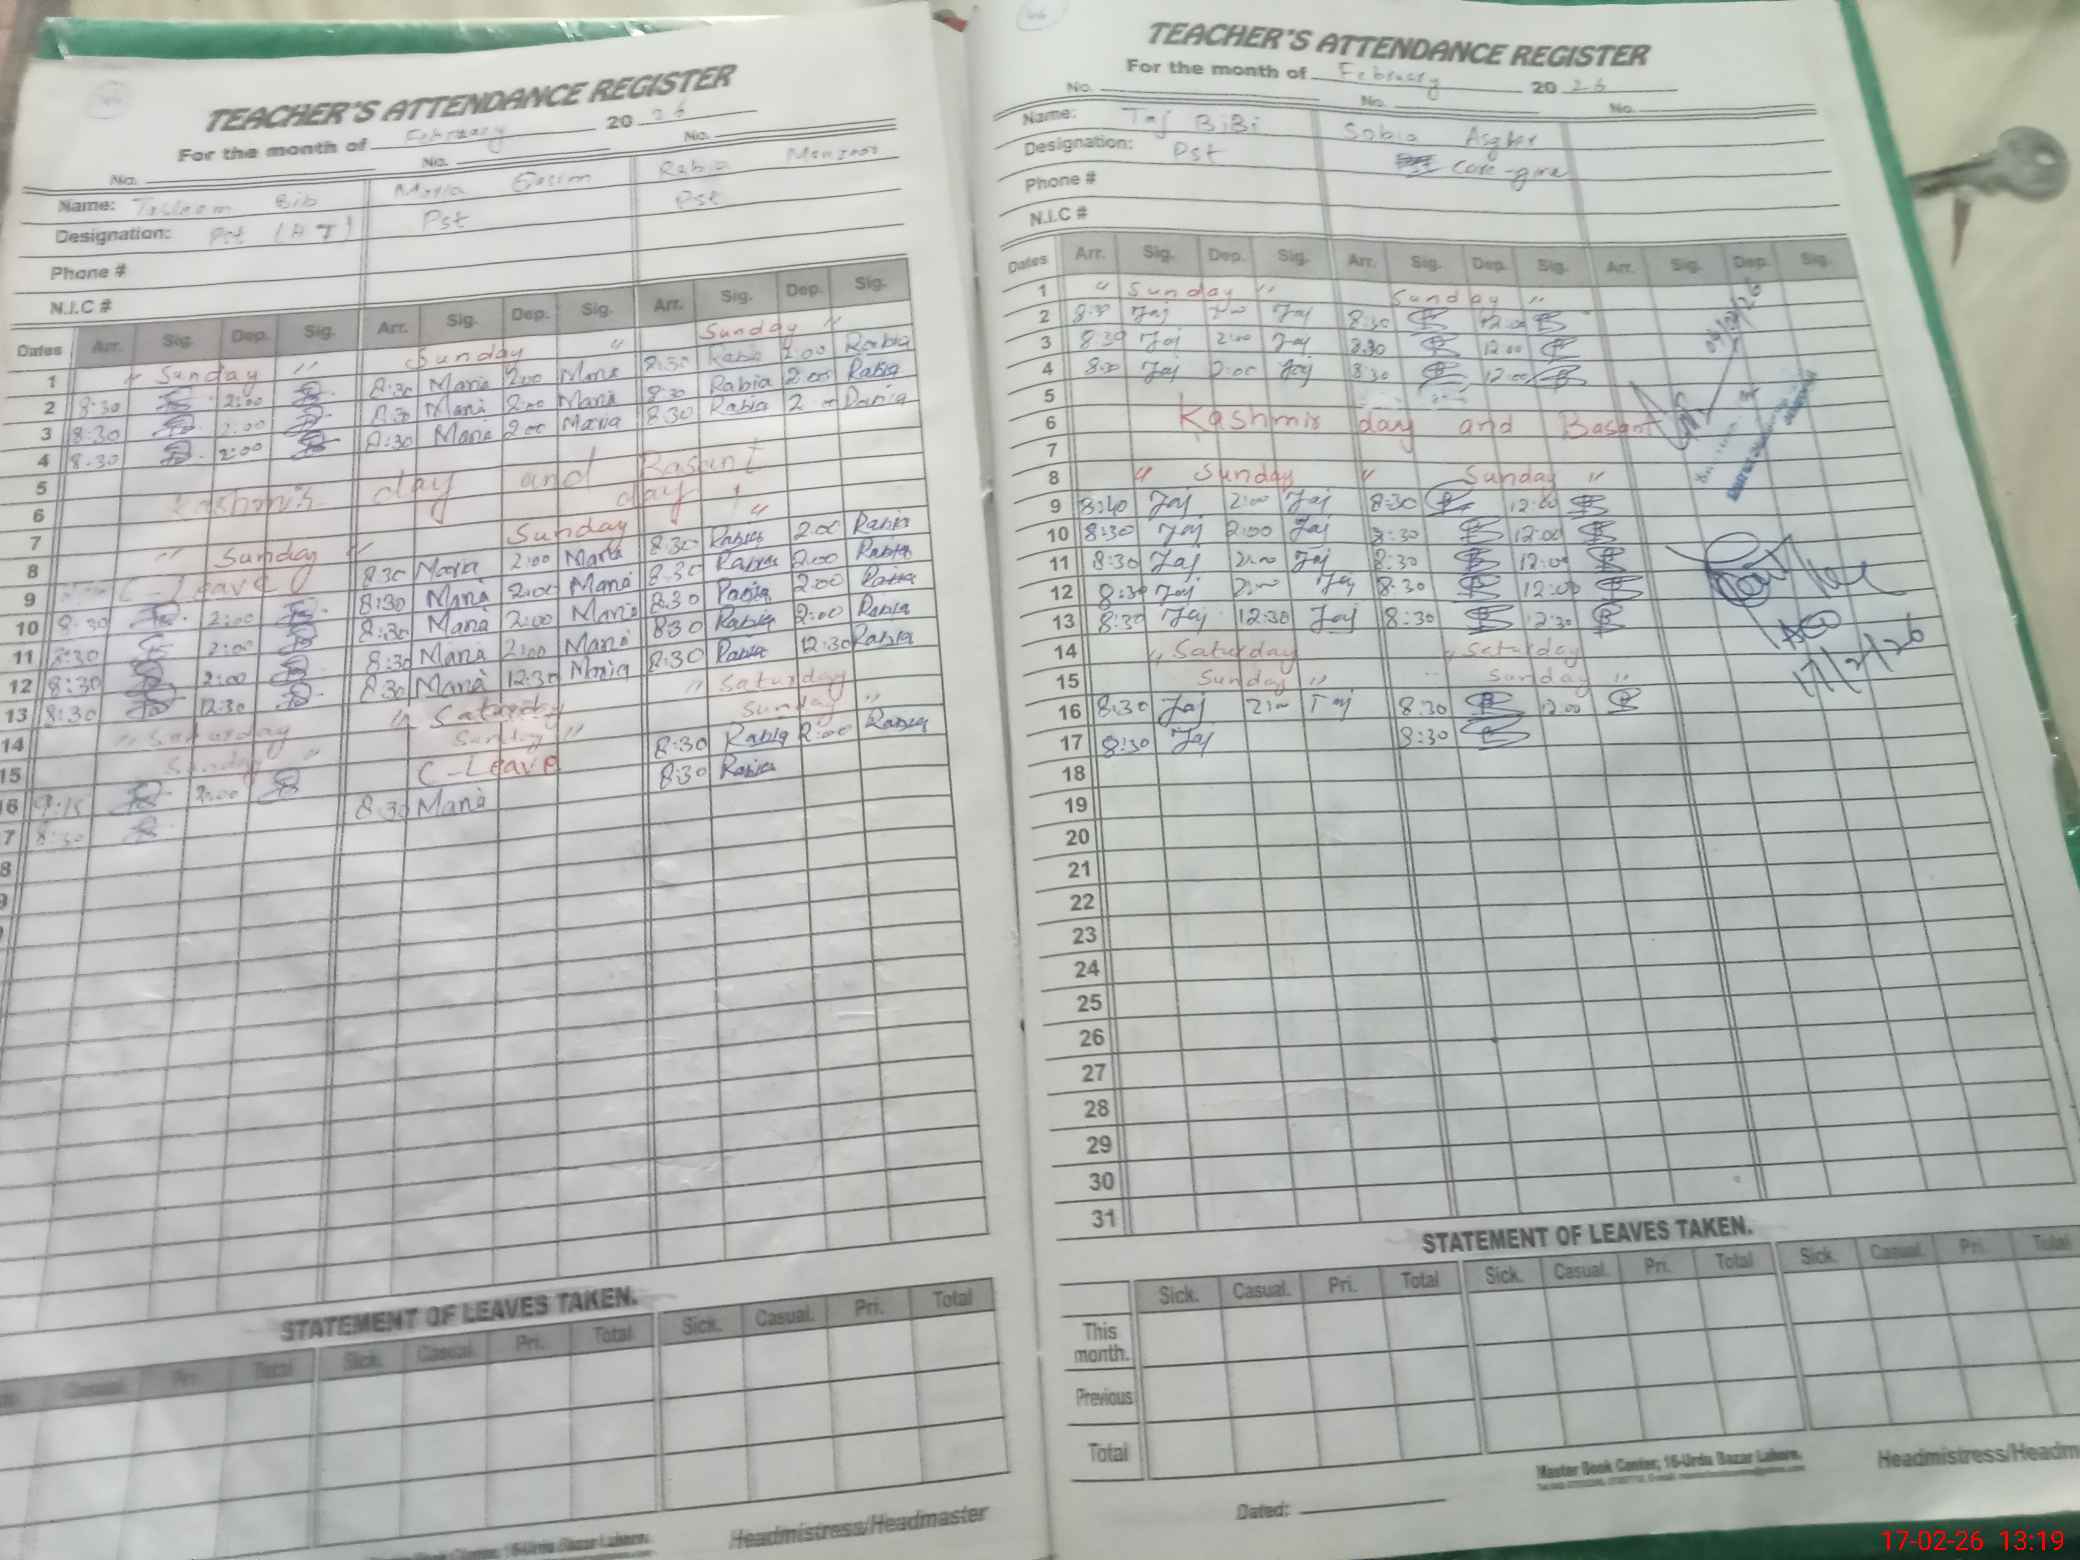 TEACHER'S ATTENDANCE REGISTER
For the month of February 20 26
No. No. No.
Name: Bib Maria Rabia
Designation: Pst (H T) Pst Pst
Phone #
N.I.C #
Dates Arr. Sig. Dep. Sig. Arr. Sig. Dep. Sig. Arr. Sig. Dep. Sig.
1 " Sunday " Sunday " Sunday "
2 8:30 2:00 8:30 Maria 2:00 Maria 8:30 Rabia 2:00 Rabia
3 8:30 2:00 8:30 Maria 2:00 Maria 8:30 Rabia 2:00 Rabia
4 8:30 2:00 8:30 Maria 2:00 Maria 8:30 Rabia 2:00 Rabia
5
6 Kashmir day and Basant day
7
8 " Sunday " Sunday "
9 C-Leave 8:30 Maria 2:00 Maria 8:30 Rabia 2:00 Rabia
10 8:30 2:00 8:30 Maria 2:00 Maria 8:30 Rabia 2:00 Rabia
11 8:30 2:00 8:30 Maria 2:00 Maria 8:30 Rabia 2:00 Rabia
12 8:30 2:00 8:30 Maria 2:00 Maria 8:30 Rabia 2:00 Rabia
13 8:30 12:30 8:30 Maria 12:30 Maria 8:30 Rabia 12:30 Rabia
14 " Saturday " Saturday " Saturday
15 Sunday " Sunday " Sunday "
16 9:15 2:00 C-Leave 8:30 Rabia 2:00 Rabia
7 8:30 8:30 Maria 8:30 Rabia
8
9
STATEMENT OF LEAVES TAKEN.
Casual. Pri. Total Sick. Casual. Pri. Total Sick. Casual. Pri. Total
Headmistress/Headmaster
TEACHER'S ATTENDANCE REGISTER
For the month of February 20 26
No. No. No.
Name: Taj BiBi Sobia Asghar
Designation: Pst Care-giver
Phone #
N.I.C #
Dates Arr. Sig. Dep. Sig. Arr. Sig. Dep. Sig. Arr. Sig. Dep. Sig.
1 " Sunday " Sunday "
2 8:30 Taj 2:00 Taj 8:30 12:00
3 8:30 Taj 2:00 Taj 8:30 12:00
4 8:30 Taj 2:00 Taj 8:30 12:00
5
6 Kashmir day and Basant
7
8 " Sunday " Sunday "
9 8:40 Taj 2:00 Taj 8:30 12:00
10 8:30 Taj 2:00 Taj 8:30 12:00
11 8:30 Taj 2:00 Taj 8:30 12:00
12 8:30 Taj 2:00 Taj 8:30 12:00
13 8:30 Taj 12:30 Taj 8:30 12:30
14 " Saturday " Saturday
15 Sunday " Sunday "
16 8:30 Taj 2:00 Taj 8:30 12:00
17 8:30 Taj 8:30
17/2/26
18
19
20
21
22
23
24
25
26
27
28
29
30
31
STATEMENT OF LEAVES TAKEN.
Sick. Casual. Pri. Total Sick. Casual. Pri. Total Sick. Casual. Pri. Total
This month.
Previous
Total
Master Book Center, 16-Urdu Bazar Lahore.
Headmistress/Headm
Dated:
17-02-26 13:19